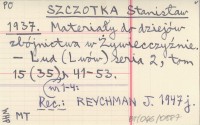 PO
SZCZOTKA Stanisław
1937. Materiały do dziejów
zbójnictwa w Żywiecczyźnie.
— Lud (Lwów) seria 2, tom
15 (35) s 41-53.
nr 1-4:
Rec.: REYCHMAN J. 1947 j.
MT